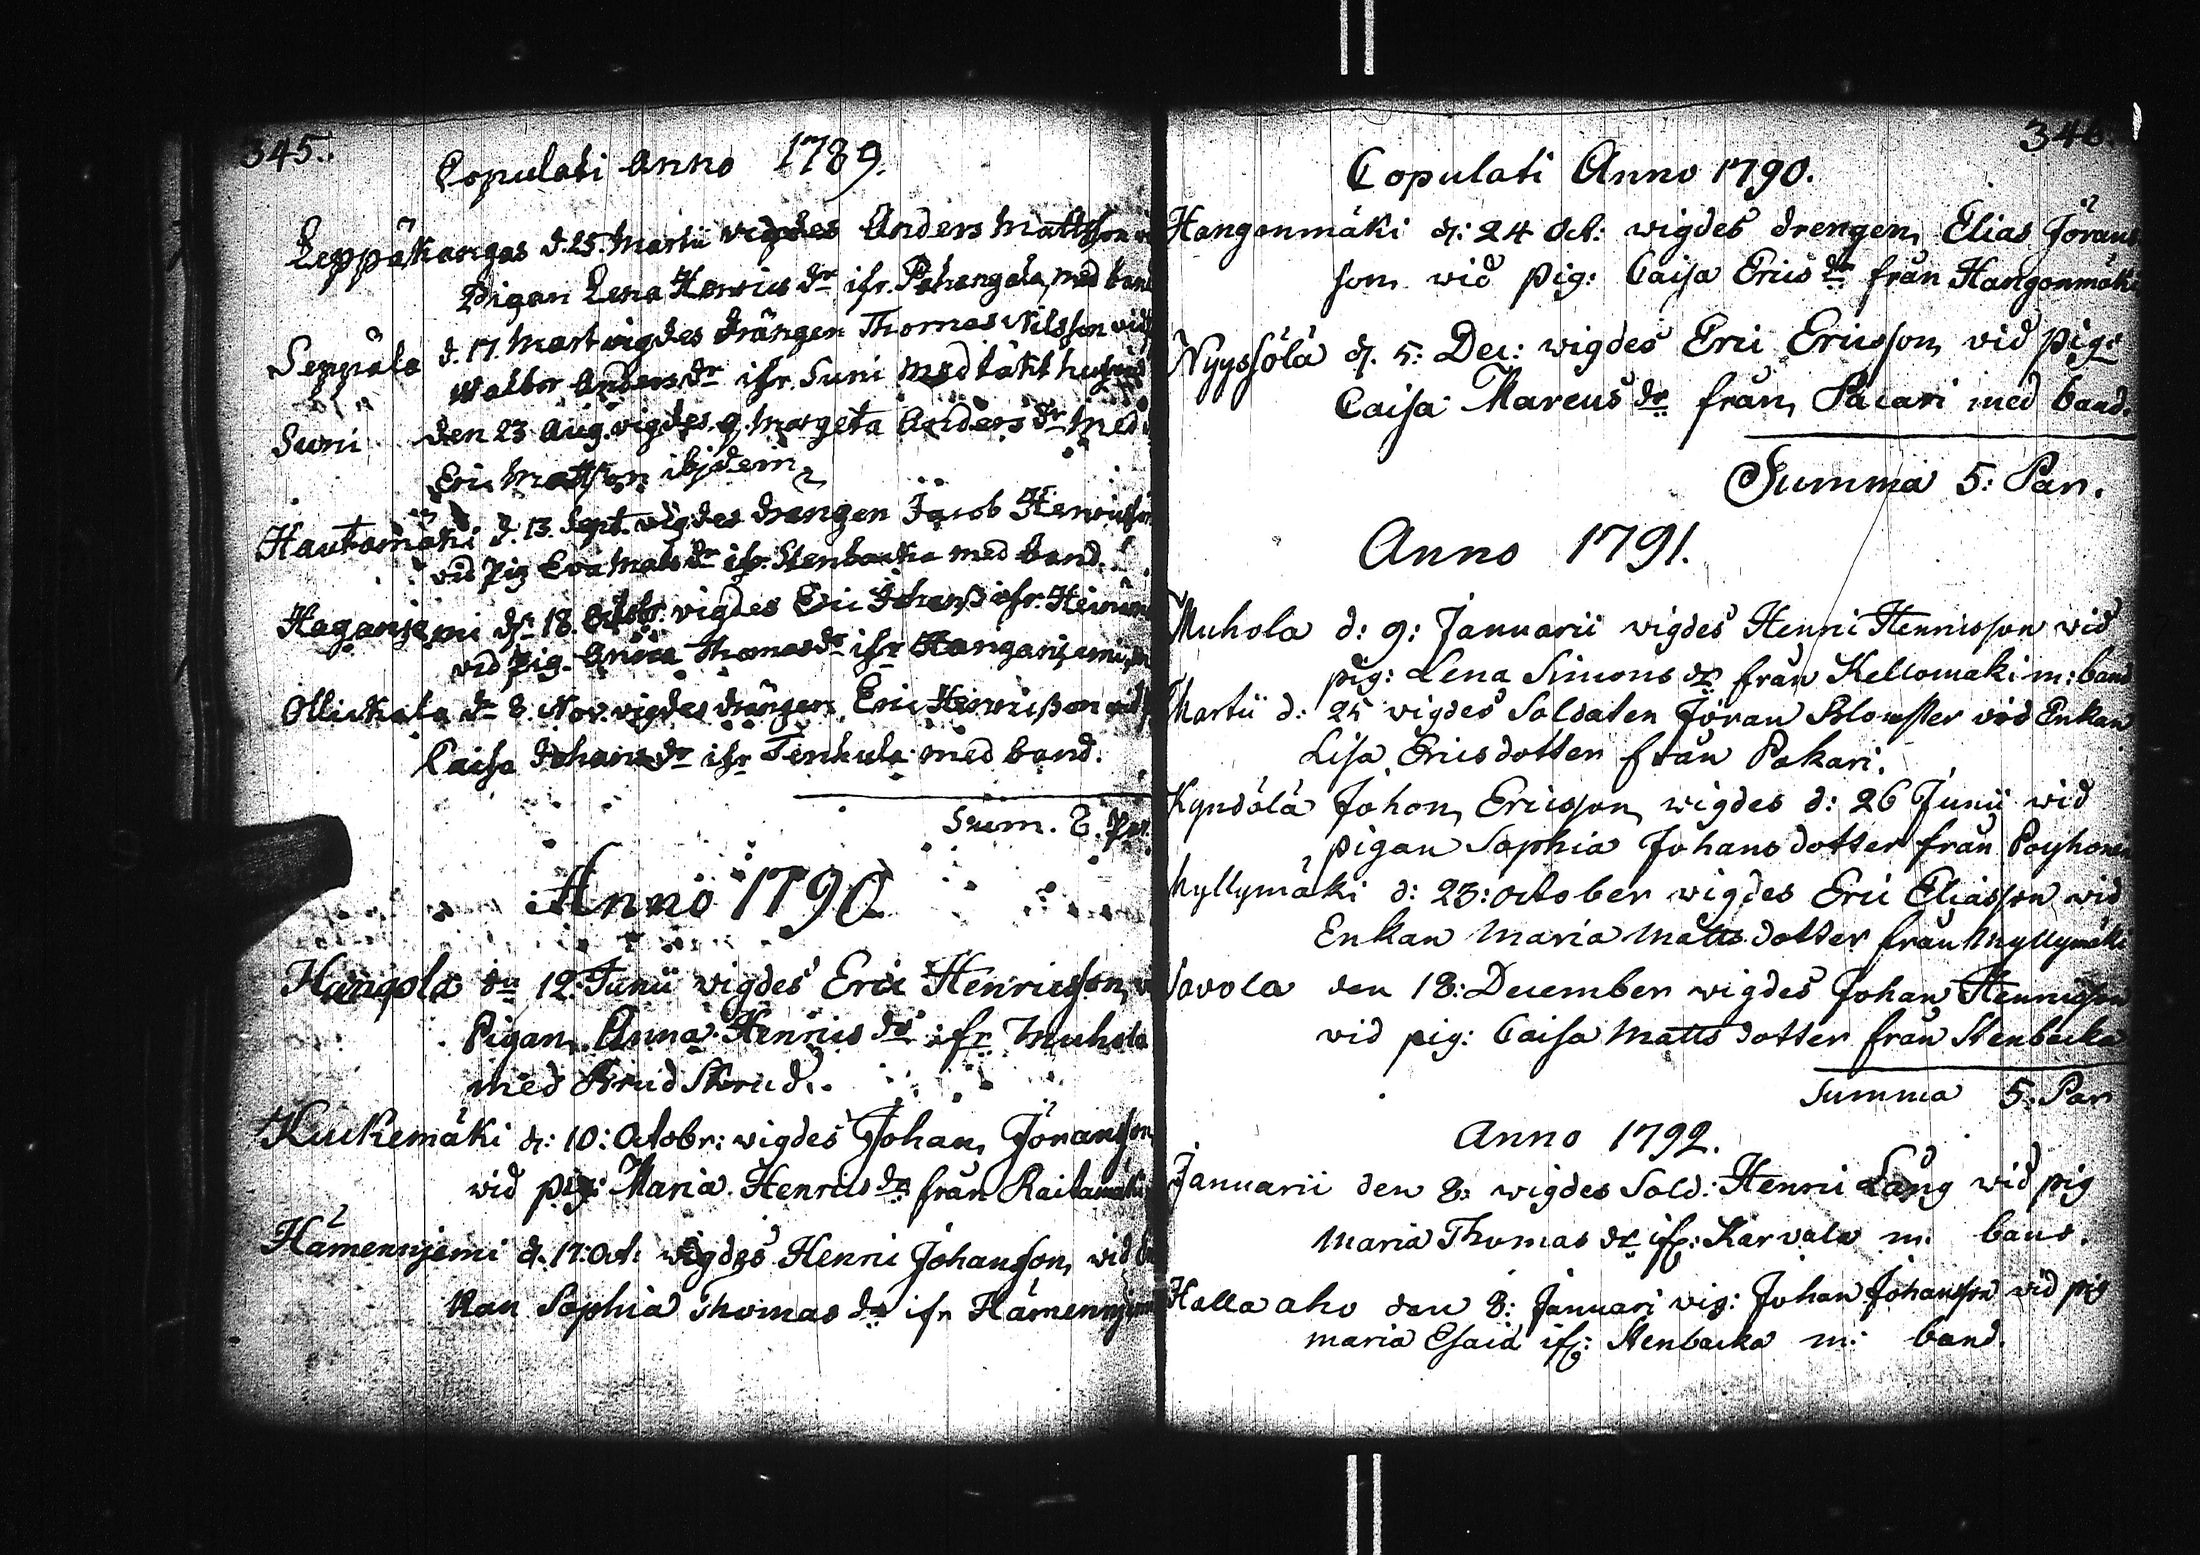 345.
Copulati Anno 1789.
Leppäkangas d. 25. Martii vigdes Anders Mattsson
Pigan Lena Henrics dr ifr. Pehengala, med band
Seppälä d. 17. Mart vigdes drängen Thomas Nilsson vid
Walbor Anders dr ifr. Suni med täkt hufwud
Suni den 23 Aug. vigdes q. Margeta Anders dr med
Eric Mattsson ibidem
Hautamäki d. 13. Sept. vigdes drängen Jacob Henricsson
vid Pig Eva Mats dr ifr. Stenbacka med band.
Haganjemi d: 18. Octobr. vigdes Eric Johanß ifr.
vid Pig. Anna Thomas dr ifr Hanganjemi
Ollickala dn 8. Nov. vigdes drängen Eric Henricßon vid
Caisa Johans dr ifr Tenhula med band.
Sum. 8. Par.
Anno 1790
Hangola dn 12. Junii vigdes Eric Henricsson, v
Pigan Anna Henrics dr ifr Muhola
med Brud Skrud.
Kuckemäki d: 10: Octobr: vigdes Johan Jöransson
vid pig: Maria Henrics dr från Raitamäki
Hämennjemi d. 17: Oct: vigdes Henric Johansson, vid En
kan Sophia Thomas dr ifr Hämennjemi
346.
Copulati Anno 1790.
Hangonmäki d: 24 Oct: wigdes drengen Elias Jörans
son wid Pig: Caisa Erics dr från Hangonmäki
Nyyssölä d. 5: Dec: wigdes Eric Ericsson vid Pig:
Caisa Marcus dr från Pacari med band.
Summa 5: Par.
Anno 1791.
Muhola d: 9: Januarii wigdes Henric Henricsson vid
pig: Lena Simons dr från Kellomäki m: band
Martii d: 25 vigdes Soldaten Jöran Blomster vid Enkan
Lisa Ericsdotter från Pakari.
Kyndölä Johan Ericsson wigdes d: 26 Junii wid
pigan Sophia Johansdotter från Poyhonen
Myllymäki d: 23: October wigdes Eric Eliasson wid
Enkan Maria Matts dotter från Myllymäki
Savola den 18: December wigdes Johan Henricsson
vid pig: Caisa Matts dotter från Stenbacka
Summa 5: Par
Anno 1792.
Januarii den 8: wigdes Sold: Henric Lång wid pig
Maria Thomas dr ifr: Karvala m: band.
Halla aho den 8: Januari vig: Johan Johansson vid pig
maria Esaid ifr: Stenbacka m: band.